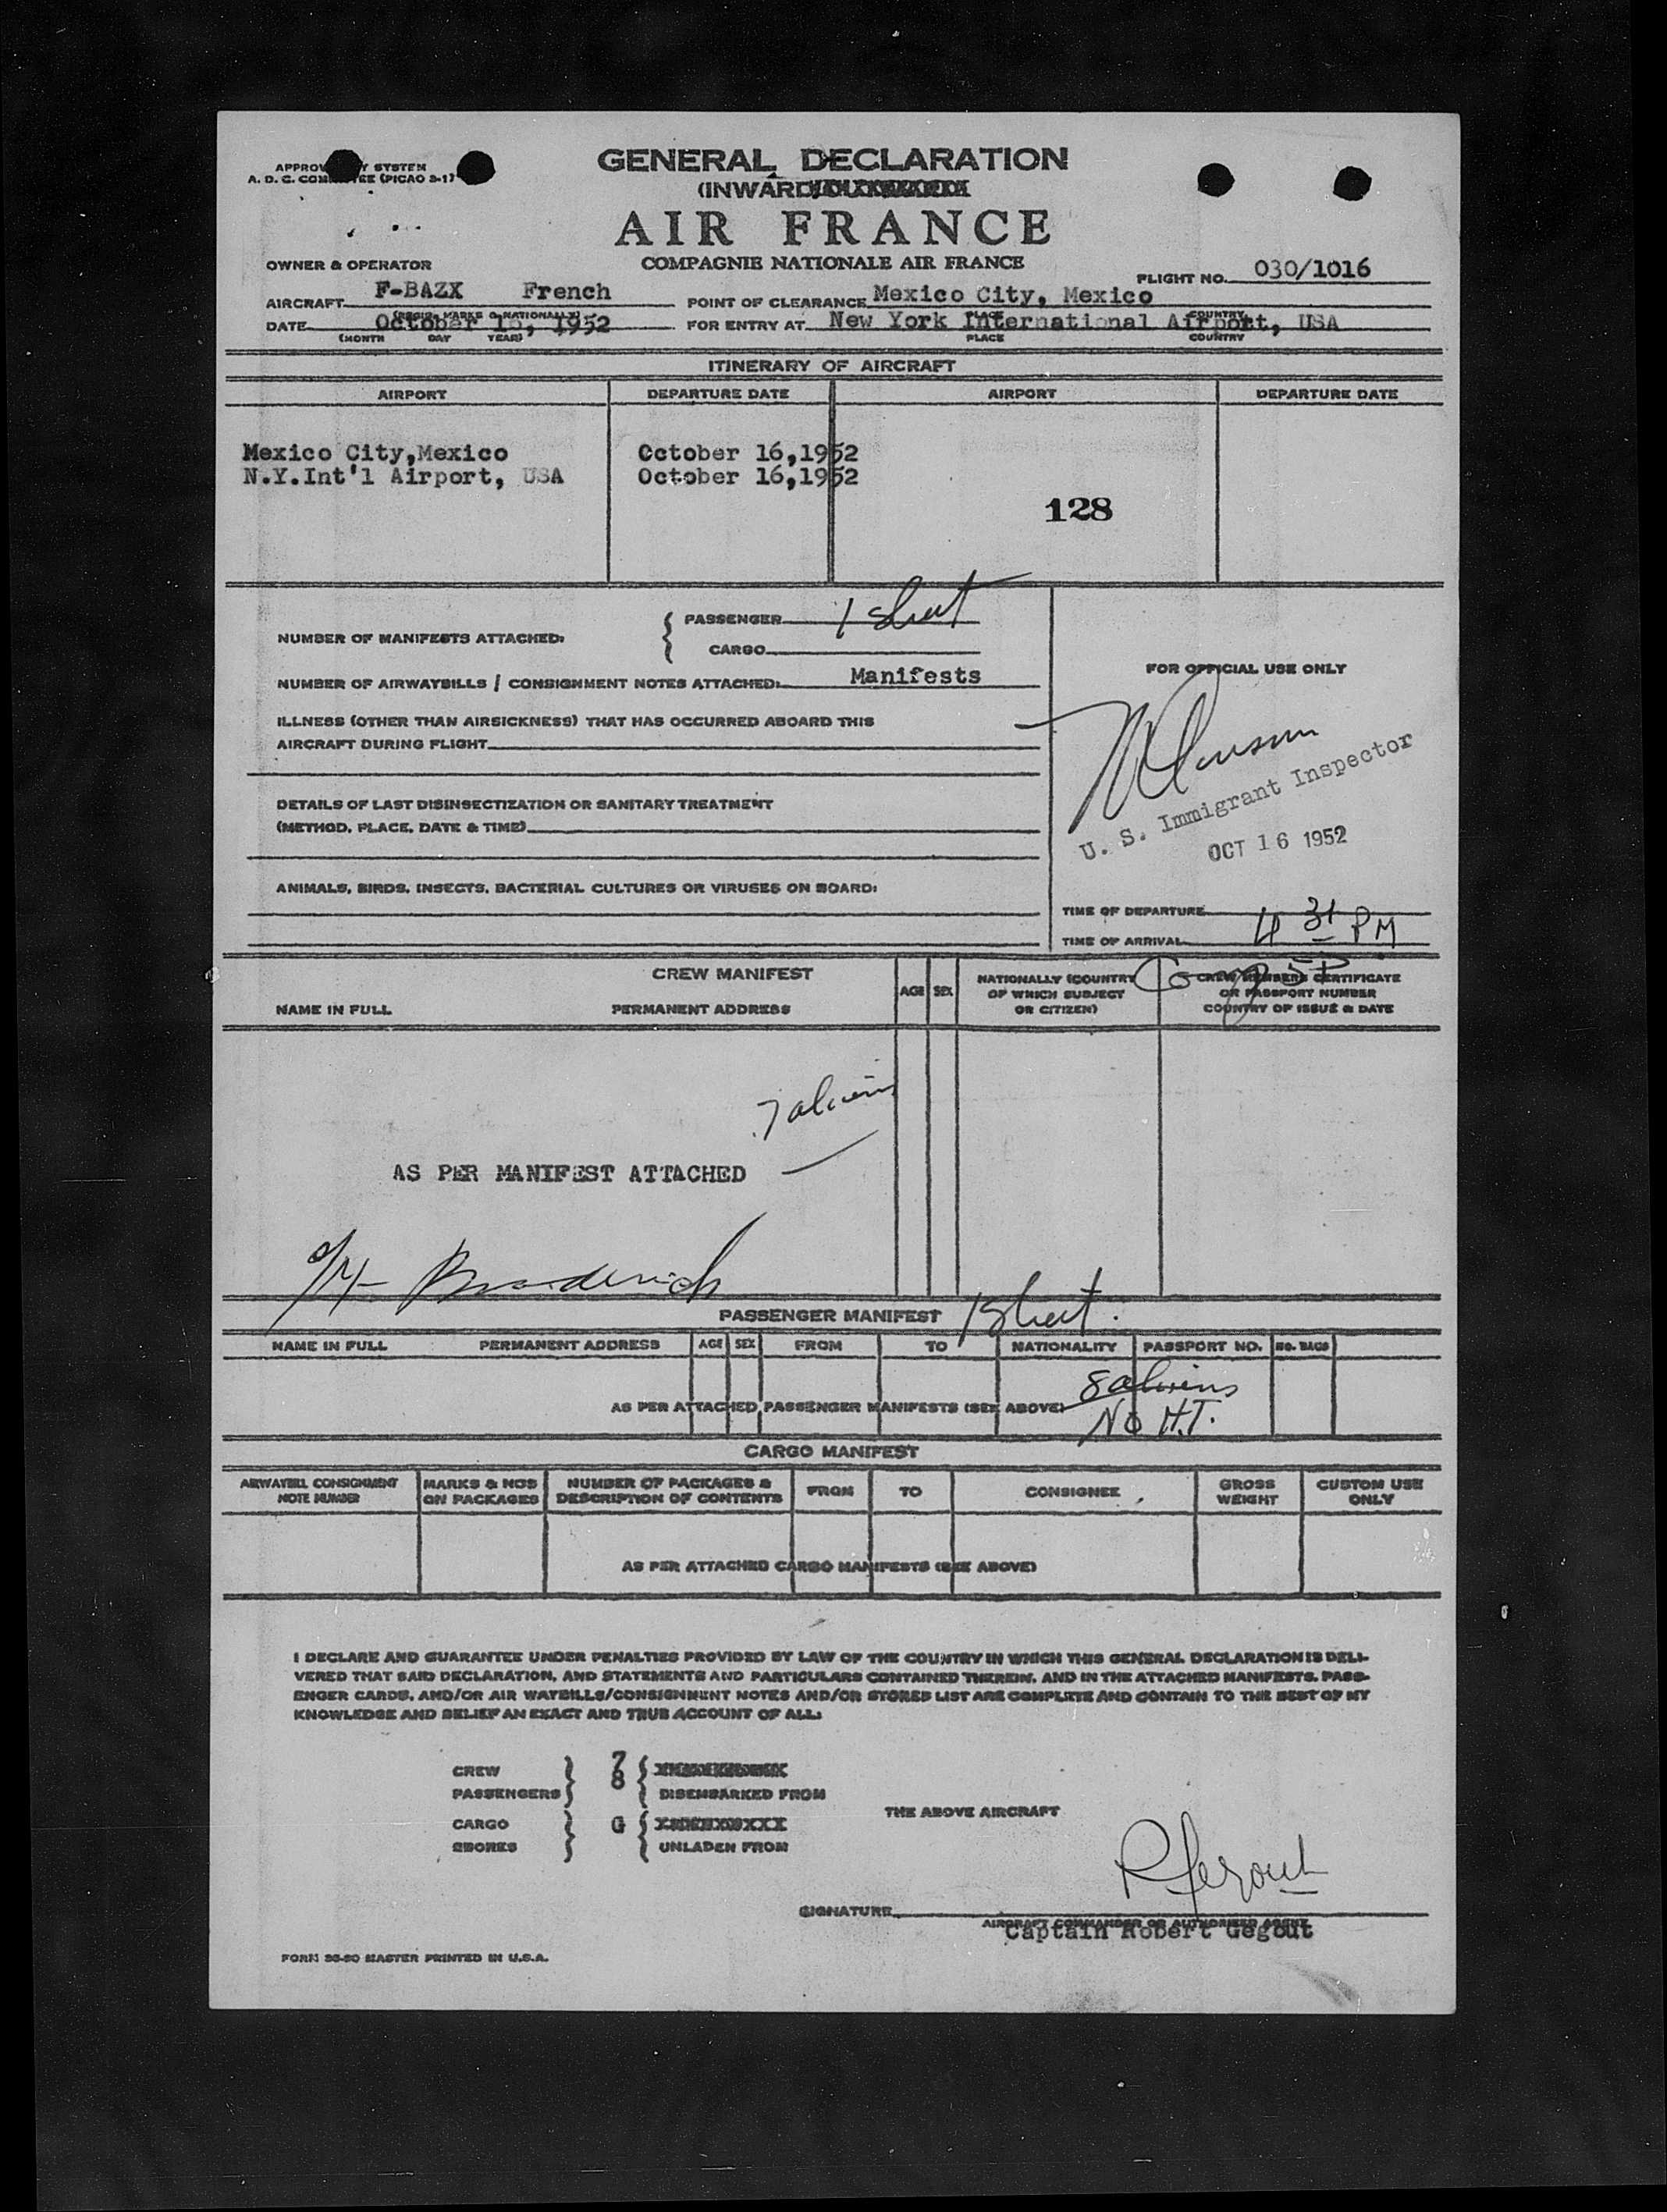 GENERAL DECLARATION
SYSTEM
A. D. C. (PICAO 2-1)
(INWARD
AIR FRANCE
COMPAGNIE NATIONALE AIR FRANCE
OWNER & OPERATOR
FLIGHT NO. 030/1016
AIRCRAFT F-BAZX French
POINT OF CLEARANCE Mexico City, Mexico
(REGIS. MARKS & NATIONALITY)
PLACE COUNTRY
DATE October 16, 1952
FOR ENTRY AT New York International Airport, USA
(MONTH DAY YEAR)
PLACE COUNTRY
ITINERARY OF AIRCRAFT
AIRPORT DEPARTURE DATE AIRPORT DEPARTURE DATE
Mexico City,Mexico October 16,1952
N.Y.Int'l Airport, USA October 16,1952
128
NUMBER OF MANIFESTS ATTACHED:
PASSENGER 1 Sheet
CARGO
NUMBER OF AIRWAYBILLS / CONSIGNMENT NOTES ATTACHED: Manifests
ILLNESS (OTHER THAN AIRSICKNESS) THAT HAS OCCURRED ABOARD THIS
AIRCRAFT DURING FLIGHT
DETAILS OF LAST DISINSECTIZATION OR SANITARY TREATMENT
(METHOD, PLACE, DATE & TIME)
ANIMALS, BIRDS, INSECTS, BACTERIAL CULTURES OR VIRUSES ON BOARD:
FOR OFFICIAL USE ONLY
U. S. Immigrant Inspector
OCT 16 1952
TIME OF DEPARTURE
TIME OF ARRIVAL 4 31 PM
CREW MANIFEST
NAME IN FULL PERMANENT ADDRESS AGE SEX
NATIONALLY (COUNTRY
OF WHICH SUBJECT
OR CITIZEN)
CREW MEMBERS CERTIFICATE
OR PASSPORT NUMBER
COUNTRY OF ISSUE & DATE
7 aliens
AS PER MANIFEST ATTACHED
Broderick
PASSENGER MANIFEST 1 Sheet.
NAME IN FULL PERMANENT ADDRESS AGE SEX FROM TO NATIONALITY PASSPORT NO. NO. BAGS
8 aliens
AS PER ATTACHED PASSENGER MANIFESTS (SEE ABOVE)
No H.T.
CARGO MANIFEST
AIRWAYBILL CONSIGNMENT
NOTE NUMBER
MARKS & NOS
ON PACKAGES
NUMBER OF PACKAGES &
DESCRIPTION OF CONTENTS
FROM TO CONSIGNEE
GROSS
WEIGHT
CUSTOM USE
ONLY
AS PER ATTACHED CARGO MANIFESTS (SEE ABOVE)
I DECLARE AND GUARANTEE UNDER PENALTIES PROVIDED BY LAW OF THE COUNTRY IN WHICH THIS GENERAL DECLARATION IS DELI-
VERED THAT SAID DECLARATION, AND STATEMENTS AND PARTICULARS CONTAINED THEREIN, AND IN THE ATTACHED MANIFESTS, PASS-
ENGER CARDS, AND/OR AIR WAYBILLS/CONSIGNMENT NOTES AND/OR STORES LIST ARE COMPLETE AND CONTAIN TO THE BEST OF MY
KNOWLEDGE AND BELIEF AN EXACT AND TRUE ACCOUNT OF ALL:
CREW 7
PASSENGERS 8 DISEMBARKED FROM
THE ABOVE AIRCRAFT
CARGO G
STORES UNLADEN FROM
R Gegout
SIGNATURE
AIRCRAFT COMMANDER OR AUTHORIZED AGENT
Captain Robert Gegout
FORM 36-50 MASTER PRINTED IN U.S.A.